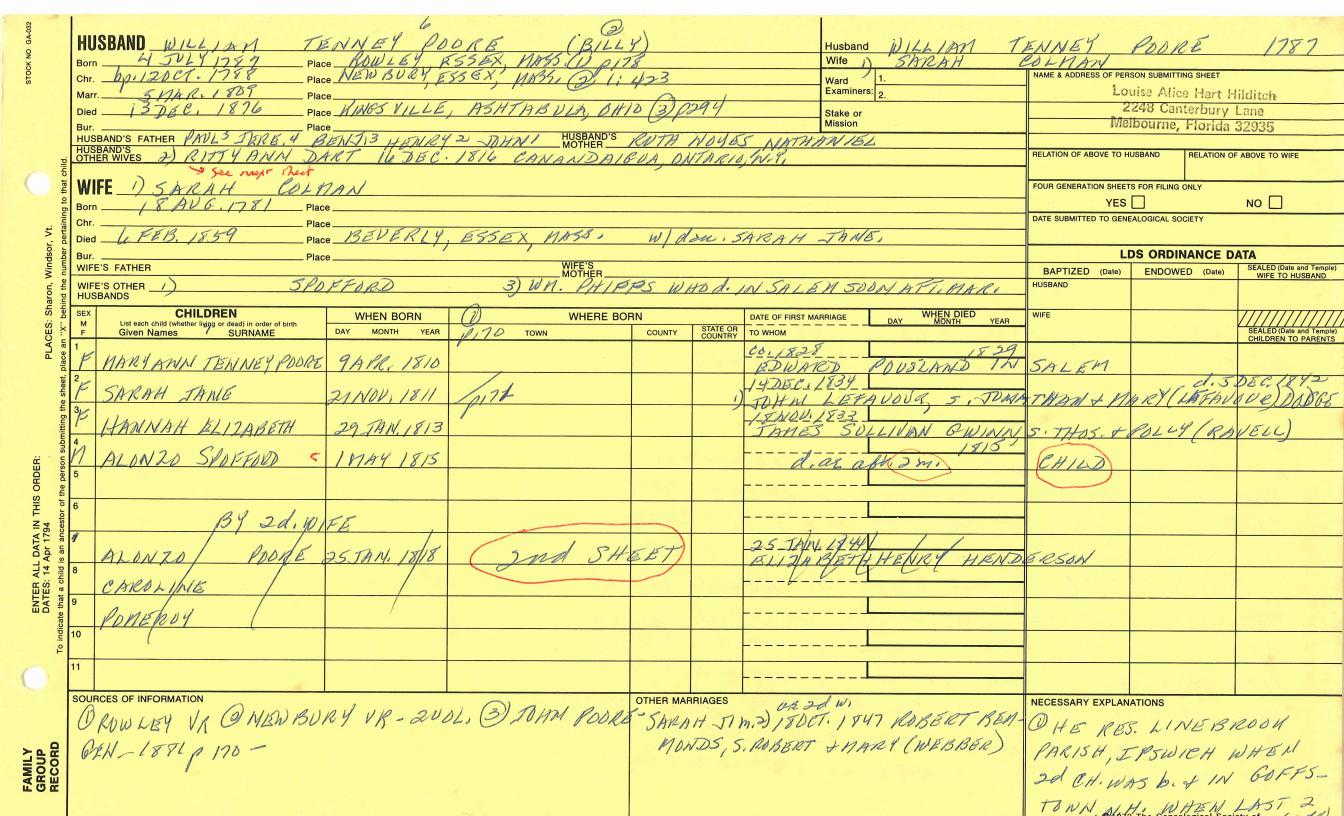 STOCK NO. GA-032
6 (2)
HUSBAND WILLIAM TENNEY POORE (BILLY)
Born 4 JULY 1787 Place ROWLEY, ESSEX, MASS. (1) p178
Chr. bp. 12 OCT. 1788 Place NEWBURY, ESSEX, MASS. (2) 1: 423
Marr. 5 MAR. 1809 Place
Died 13 DEC. 1876 Place KINGSVILLE, ASHTABULA, OHIO (3) p294
Bur. Place
HUSBAND'S FATHER PAUL5 JERE.4 BENJ.3 HENRY2 JOHN1 HUSBAND'S MOTHER RUTH NOYES, NATHANIEL
HUSBAND'S OTHER WIVES 2) RITTY ANN DART 16 DEC. 1816 CANANDAIGUA, ONTARIO, N.Y.
see next sheet
WIFE 1) SARAH COLMAN
Born 18 AUG. 1781 Place
Chr. Place
Died 6 FEB. 1859 Place BEVERLY, ESSEX, MASS. w/ dau. SARAH JANE.
Bur. Place
WIFE'S FATHER WIFE'S MOTHER
WIFE'S OTHER HUSBANDS 1) SPOFFORD 3) WM. PHIPPS WHO d. IN SALEM SOON AFT. MAR.
Husband WILLIAM TENNEY POORE 1787
Wife 1) SARAH COLMAN
Ward Examiners: 1.
2.
Stake or Mission
NAME & ADDRESS OF PERSON SUBMITTING SHEET
Louise Alice Hart Hilditch
2248 Canterbury Lane
Melbourne, Florida 32935
RELATION OF ABOVE TO HUSBAND RELATION OF ABOVE TO WIFE
FOUR GENERATION SHEETS FOR FILING ONLY
YES NO
DATE SUBMITTED TO GENEALOGICAL SOCIETY
LDS ORDINANCE DATA
BAPTIZED (Date) ENDOWED (Date) SEALED (Date and Temple) WIFE TO HUSBAND
HUSBAND
WIFE
SEALED (Date and Temple) CHILDREN TO PARENTS
SEX M F CHILDREN WHEN BORN (1) WHERE BORN DATE OF FIRST MARRIAGE WHEN DIED
List each child (whether living or dead) in order of birth
Given Names SURNAME DAY MONTH YEAR p.170 TOWN COUNTY STATE OR COUNTRY TO WHOM DAY MONTH YEAR
1 F MARY ANN TENNEY POORE 9 APR. 1810 CO. 1828 1829
EDWARD POUSLAND IN SALEM
2 F SARAH JANE 21 NOV. 1811 14 DEC. 1834 d. 5 DEC. 1842
1) JOHN LEFAVOUR, S. JONATHAN & MARY (LEFAVOUR) DODGE
3 F HANNAH ELIZABETH 29 JAN. 1813 18 NOV. 1833
JAMES SULLIVAN GWINN, S. THOS. & POLLY (RAVELL)
4 ALONZO SPOFFORD 1 MAY 1815 1815
d. ae abt 2 m. CHILD
5
6
BY 2d. WIFE
7 ALONZO POORE 25 JAN. 1818 2nd SHEET 25 JAN. 1841
ELIZABETH HENRY HENDERSON
8 CAROLINE
9 POMEROY
10
11
SOURCES OF INFORMATION
(1) ROWLEY VR (2) NEWBURY VR - 2 VOL. (3) JOHN POORE
GEN - 1881 p 170 -
OTHER MARRIAGES
as 2d w.
SARAH J. m. 2) 18 OCT. 1847 ROBERT REMMONDS, S. ROBERT & MARY (WEBBER)
NECESSARY EXPLANATIONS
(1) HE RES. LINEBROOK
PARISH, IPSWICH WHEN
2d CH. WAS b. & IN GOFFS-
TOWN, N.H. WHEN LAST 2
PLACES: Sharon, Windsor, Vt.
ENTER ALL DATA IN THIS ORDER:
DATES: 14 Apr 1794
To indicate that a child is an ancestor of the person submitting the sheet, place an "X" behind the number pertaining to that child.
FAMILY GROUP RECORD